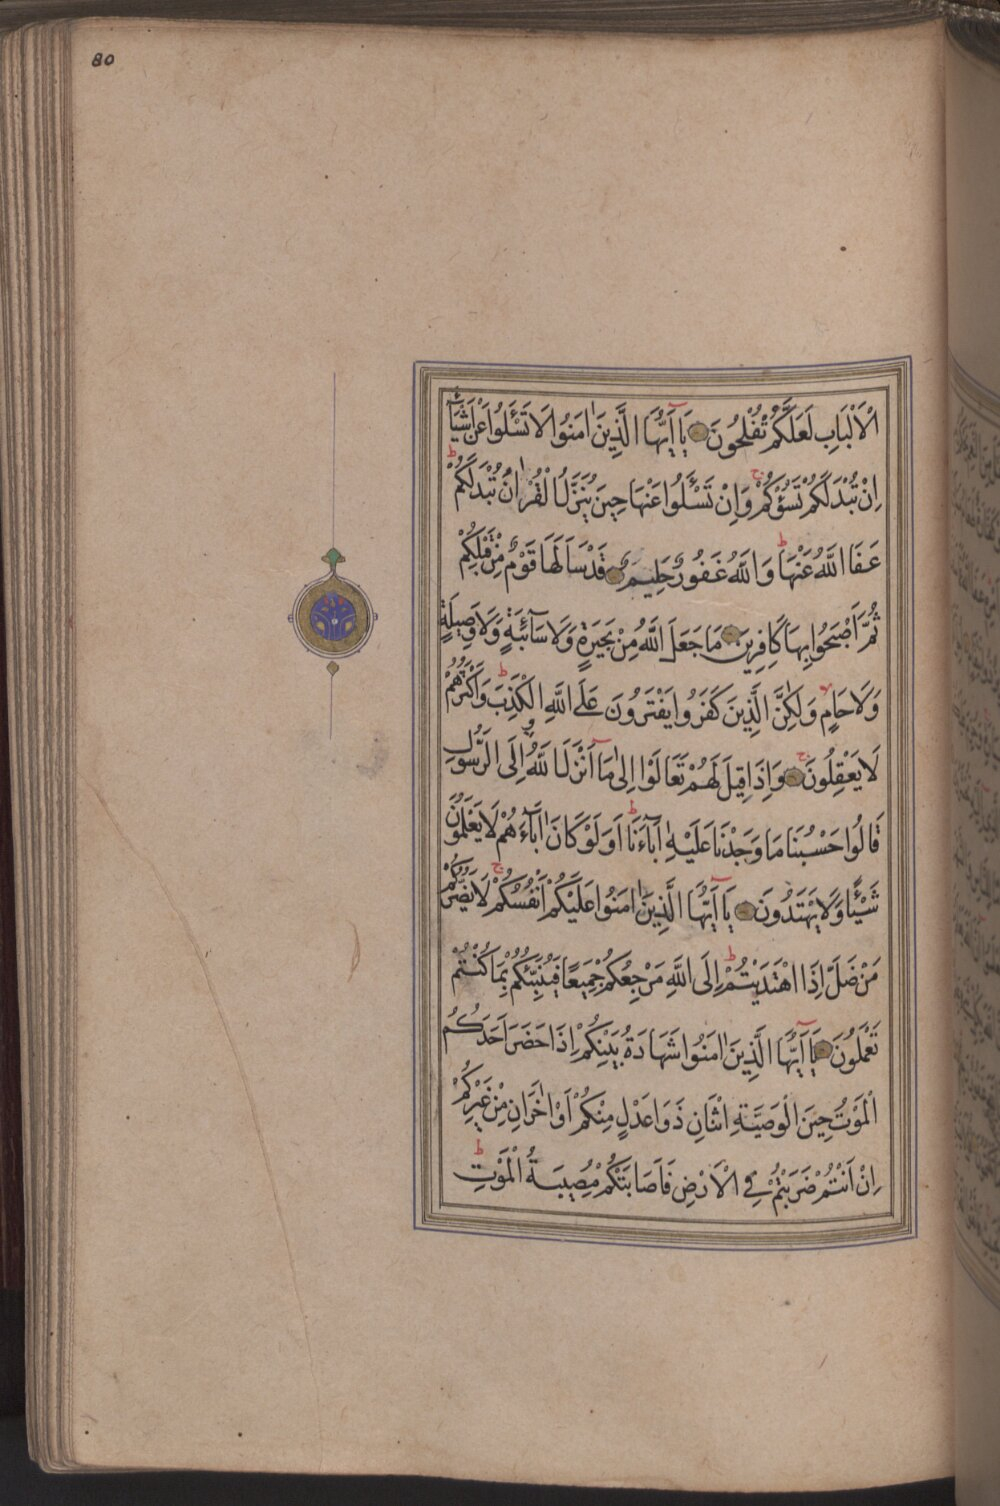 80
اْلاَلْبَابِ لَعَلَّكُمْ تُفْلِحُونَ يَآ اَيُّهَا الَّذِينَ اٰمَنُوا لَا تَسْـَٔلُوا عَنْ اَشْيَآءَ
اِنْ تُبْدَ لَكُمْ تَسُؤْكُمْ ج وَاِنْ تَسْـَٔلُوا عَنْهَا حِينَ يُنَزَّلُ الْقُرْاٰنُ تُبْدَ لَكُمْ ط
عَفَا اللّٰهُ عَنْهَا ط وَاللّٰهُ غَفُورٌ حَلِيمٌ قَدْ سَاَلَهَا قَوْمٌ مِنْ قَبْلِكُمْ
ثُمَّ اَصْبَحُوا بِهَا كَافِرِينَ مَا جَعَلَ اللّٰهُ مِنْ بَحِيرَةٍ وَلَا سَآئِبَةٍ وَلَا وَصِيلَةٍ
وَلَا حَامٍ لا وَلٰكِنَّ الَّذِينَ كَفَرُوا يَفْتَرُونَ عَلَى اللّٰهِ الْكَذِبَ ط وَاَكْثَرُهُمْ
لَا يَعْقِلُونَ ج وَاِذَا قِيلَ لَهُمْ تَعَالَوْا اِلٰى مَآ اَنْزَلَ اللّٰهُ وَاِلَى الرَّسُولِ
قَالُوا حَسْبُنَا مَا وَجَدْنَا عَلَيْهِ اٰبَآءَنَا ط اَوَلَوْ كَانَ اٰبَآءُهُمْ لَا يَعْلَمُونَ
شَيْـًٔا وَلَا يَهْتَدُونَ يَآ اَيُّهَا الَّذِينَ اٰمَنُوا عَلَيْكُمْ اَنْفُسَكُمْ ج لَا يَضُرُّكُمْ
مَنْ ضَلَّ اِذَا اهْتَدَيْتُمْ ط اِلَى اللّٰهِ مَرْجِعُكُمْ جَمِيعًا فَيُنَبِّئُكُمْ بِمَا كُنْتُمْ
تَعْمَلُونَ يَآ اَيُّهَا الَّذِينَ اٰمَنُوا شَهَادَةُ بَيْنِكُمْ اِذَا حَضَرَ اَحَدَكُمُ
الْمَوْتُ حِينَ الْوَصِيَّةِ اثْنَانِ ذَوَا عَدْلٍ مِنْكُمْ اَوْ اٰخَرَانِ مِنْ غَيْرِكُمْ
اِنْ اَنْتُمْ ضَرَبْتُمْ فِي الْاَرْضِ فَاَصَابَتْكُمْ مُصِيبَةُ الْمَوْتِ ط